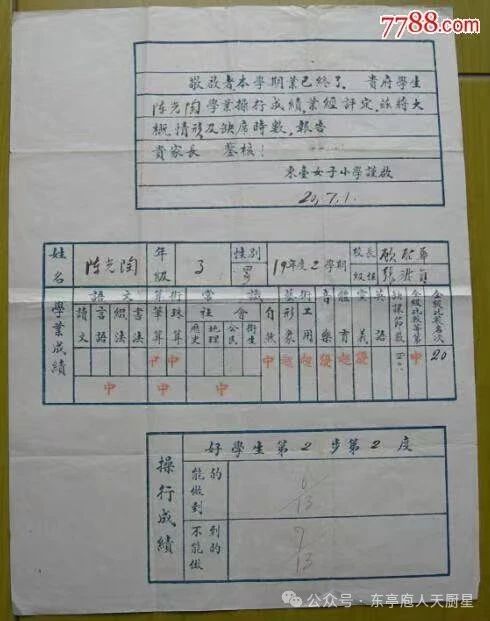 7788.com
敬啟者本學期業已終了，貴府學生
陈光陶學業操行成績，業經評定，茲將大
概情形及缺席時數，報告
貴家長 鉴核！
東臺女子小學謹啟
20.7.1.
姓名 陈光陶 年級 3 性别 男 19年度2學期 校長 級任
學業成績
語文 算術 常識 藝術 音樂 體育 黨義 英語 缺課節數 全級比較等第 全級比較名次
讀文 言語 綴法 書法 筆算 珠算 社會 自然 形象 工用
歷史 地理 公民 衛生
中 中 中 超 超 優 超 優 中 20
中 中 中
操行成績
好學生第2步第2度
能做到的 6/13
不能做到的 7/13
公众号·东亭庖人天厨星